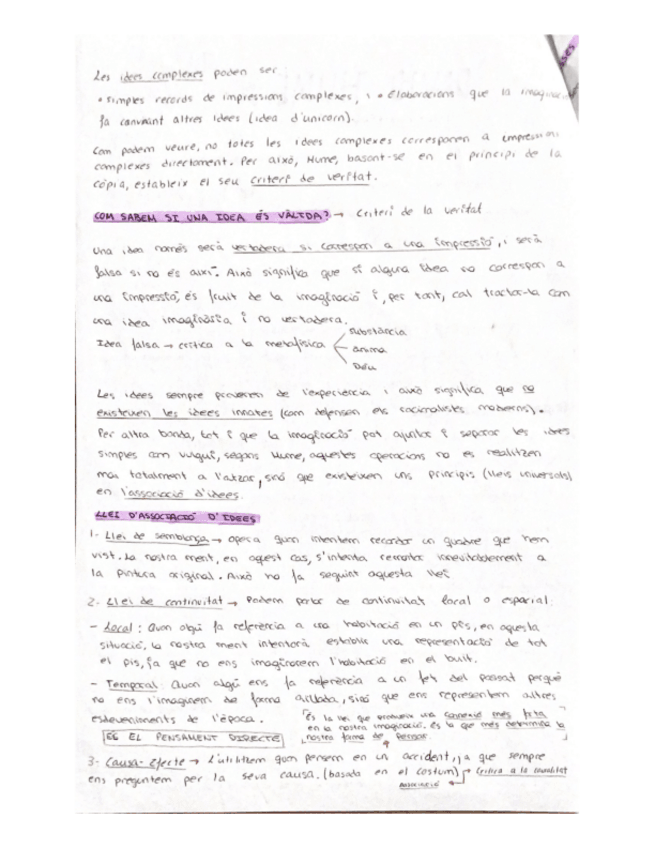 Les idees complexes poden ser:
• Simples records de impressions complexes, i • Elaboracions que la imaginació
fa canviant altres idees (idea d'unicorn).
Com podem veure, no totes les idees complexes corresponen a impressions
complexes directament. Per això, Hume, basant-se en el principi de la
còpia, estableix el seu criteri de veritat.
COM SABEM SI UNA IDEA ÉS VÀLIDA? → Criteri de la veritat
Una idea només serà vertadera si correspon a una impressió, i serà
falsa si no és així. Això significa que si alguna idea no correspon a
una impressió, és fruit de la imaginació i, per tant, cal tractar-la com
una idea imaginària i no vertadera.
Idea falsa → crítica a la metafísica
substància
ànima
Déu
Les idees sempre provenen de l'experiència i això significa que no
existeixen les idees innates (com defensen els racionalistes moderns).
Per altra banda, tot i que la imaginació pot ajuntar i separar les idees
simples com vulgui, segons Hume, aquestes operacions no es realitzen
mai totalment a l'atzar, sinó que existeixen uns principis (lleis universals)
en l'associació d'idees.
LLEI D'ASSOCIACIÓ D'IDEES
1- Llei de semblança → opera quan intentem recordar un quadre que hem
vist. La nostra ment, en aquest cas, s'intenta remuntar inevitablement a
la pintura original. Això ho fa seguint aquesta llei
2- Llei de continuitat → Podem parlar de continuitat local o espacial:
- Local: Quan algú fa referència a una habitació en un pis, en aquesta
situació, la nostra ment intentarà establir una representació de tot
el pis, ja que no ens imaginarem l'habitació en el buit.
- Temporal: Quan algú ens fa referència a un fet del passat perquè
no ens l'imaginem de forma aïllada, sinó que ens representem altres
esdeveniments de l'època.
És la llei que produeix una connexió més forta
en la nostra imaginació. és la que més determina la
nostra forma de pensar.
ÉS EL PENSAMENT DIRECTE
3- Causa-Efecte → L'utilitzem quan pensem en un accident, ja que sempre
ens preguntem per la seva causa. (basada en el costum) → Crítica a la causalitat
associació